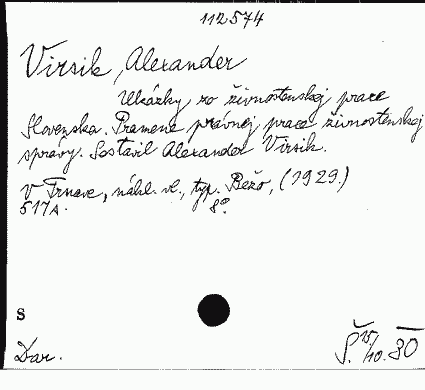 112574
Virsik, Alexander
Ukázky zo živnostenskej prace
Slovenska. Pramene právnej prace živnostenskej
správy. Sostavil Alexander Virsik.
V Trnave, nákl. vl., typ. Bežo, (1929.)
517A. 8°.
S
Dar. Š. 15/10. 30